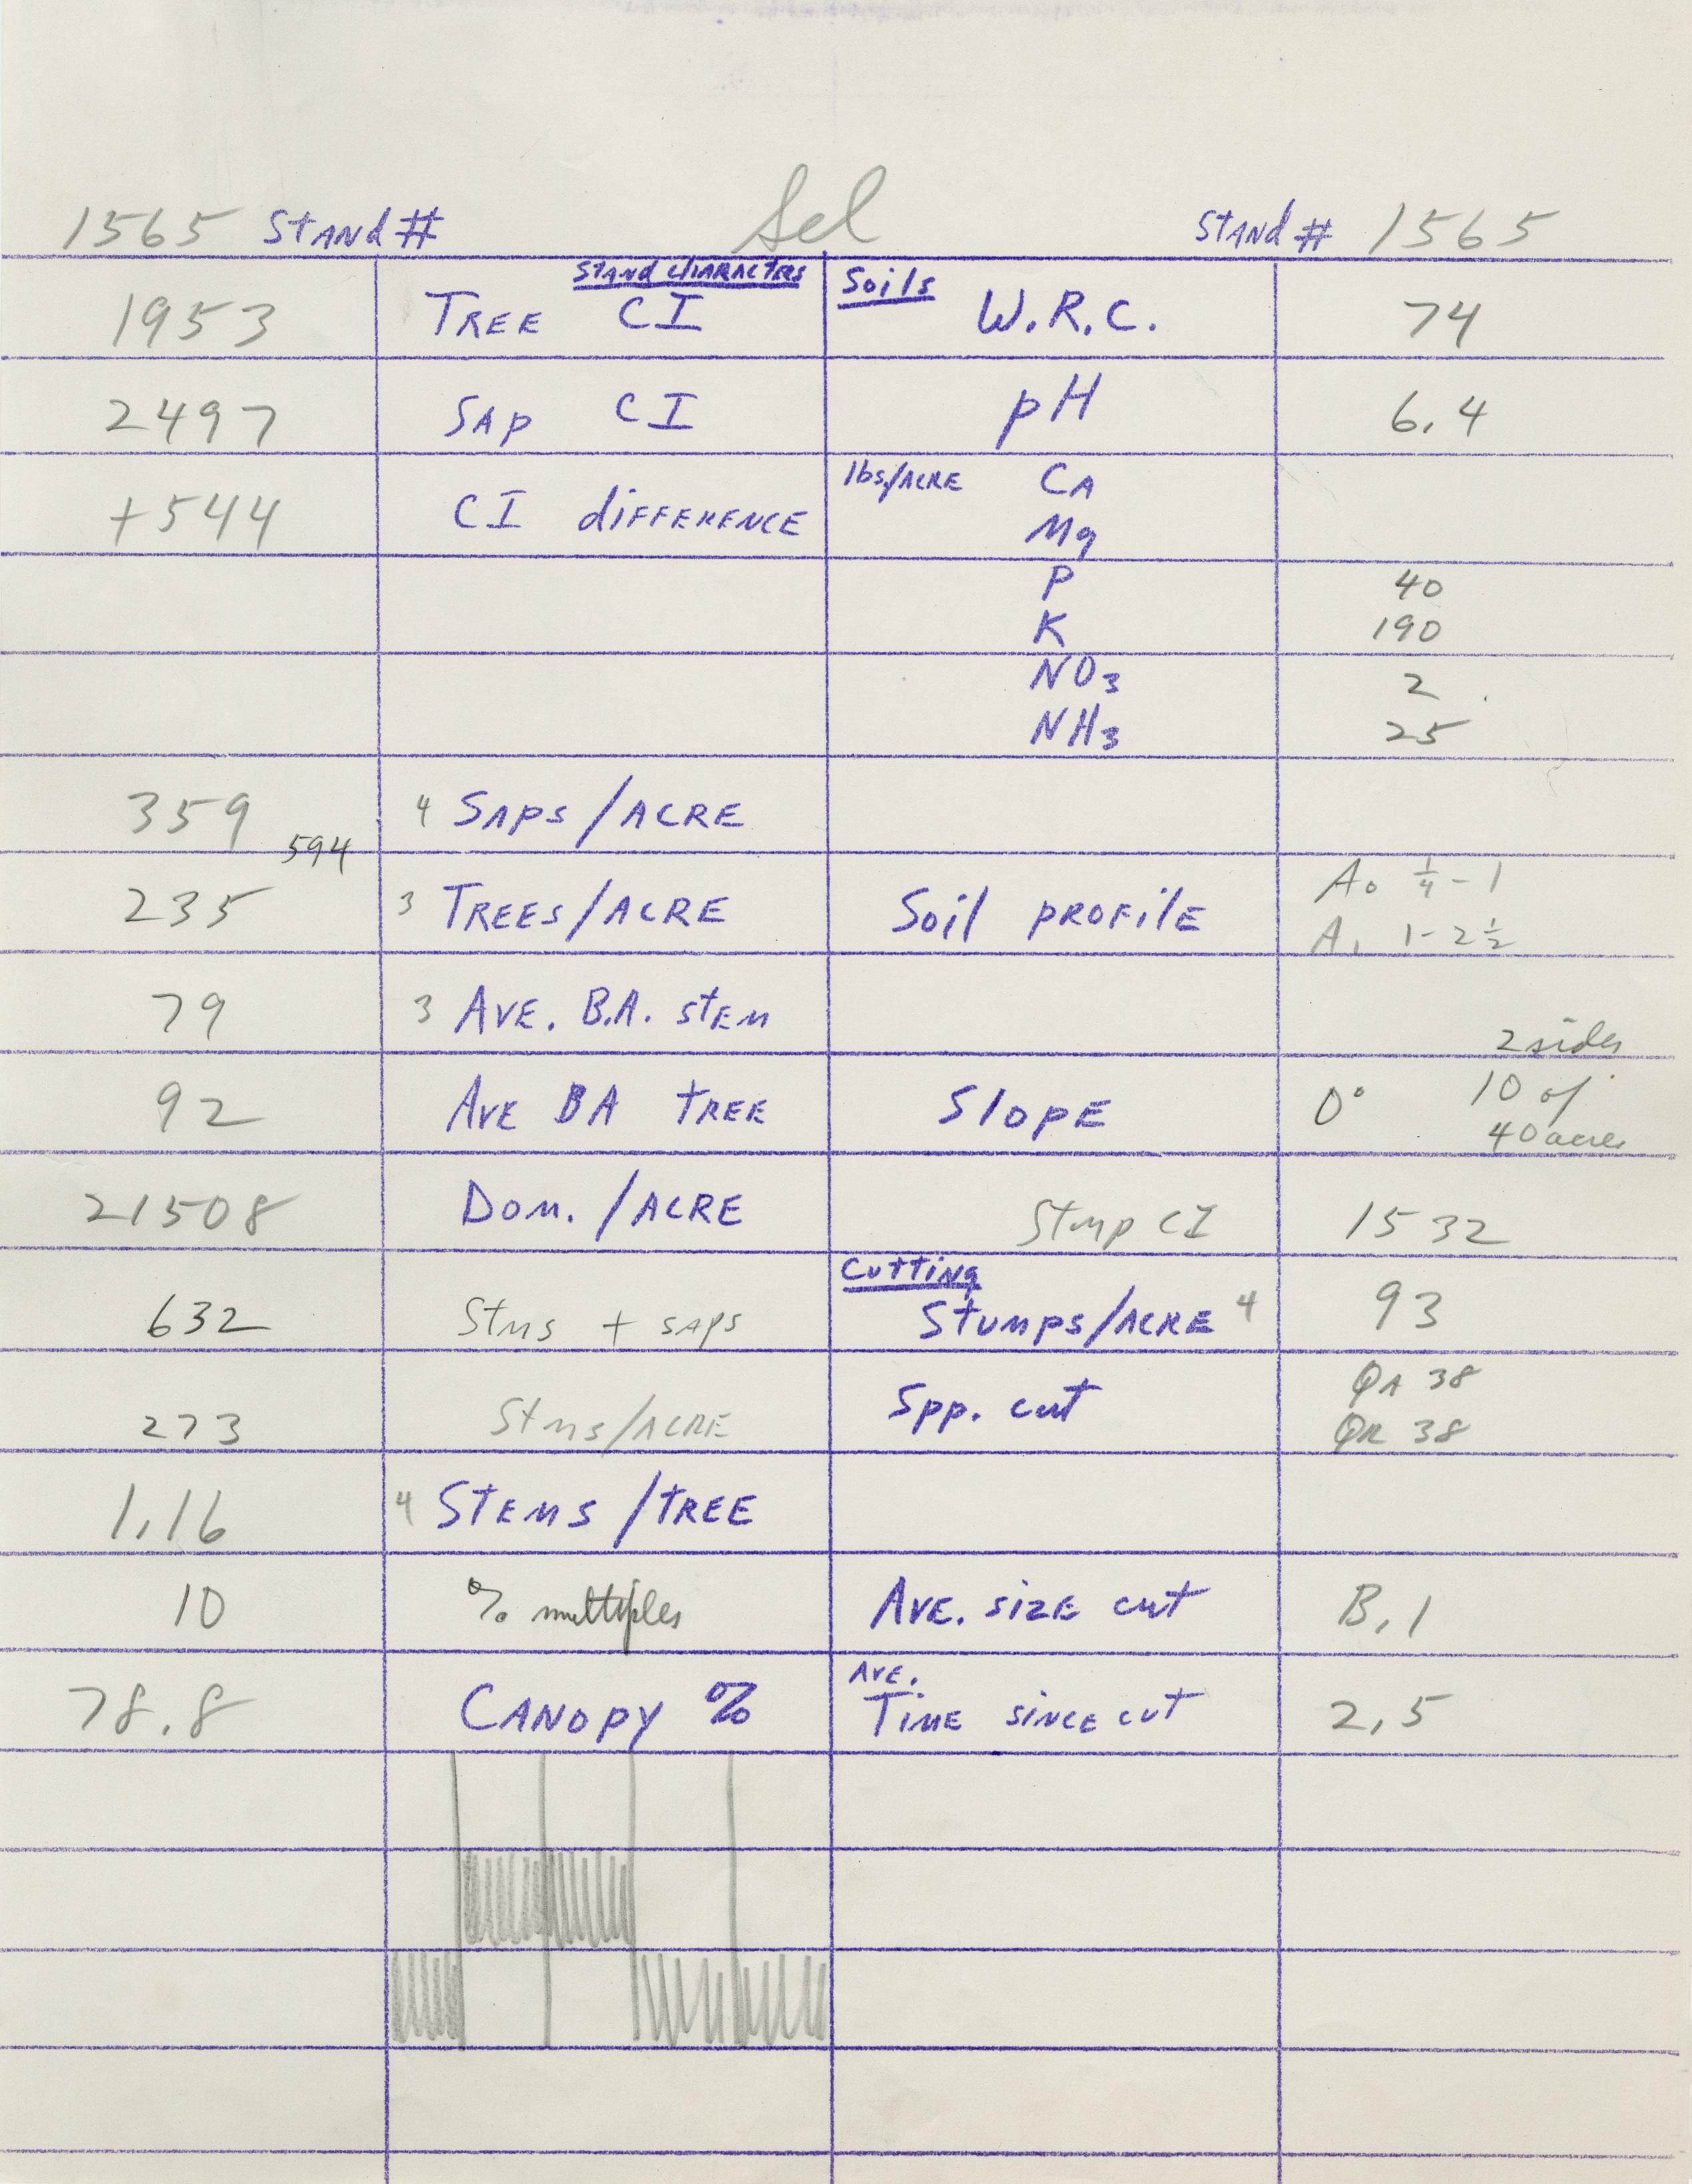 1565 Stand # Sel Stand # 1565
Stand Characters Soils
1953 Tree CI W.R.C. 74
2497 Sap CI pH 6.4
+544 CI difference lbs/acre Ca
Mg
P 40
K 190
NO3 2
NH3 25
359 4 Saps/acre
594
235 3 Trees/acre Soil profile A0 1/4 - 1
A1 1 - 2 1/2
79 3 Ave. B.A. stem
2 sides
92 Ave BA tree Slope 0° 10 of
40 acres
21508 Dom./acre Stmp CI 1532
Cutting
632 Stms + saps Stumps/acre 4 93
273 Stms/acre Spp. cut QA 38
QR 38
1.16 4 Stems/tree
10 % multiples Ave. size cut B.1
78.8 Canopy % Ave. Time since cut 2.5